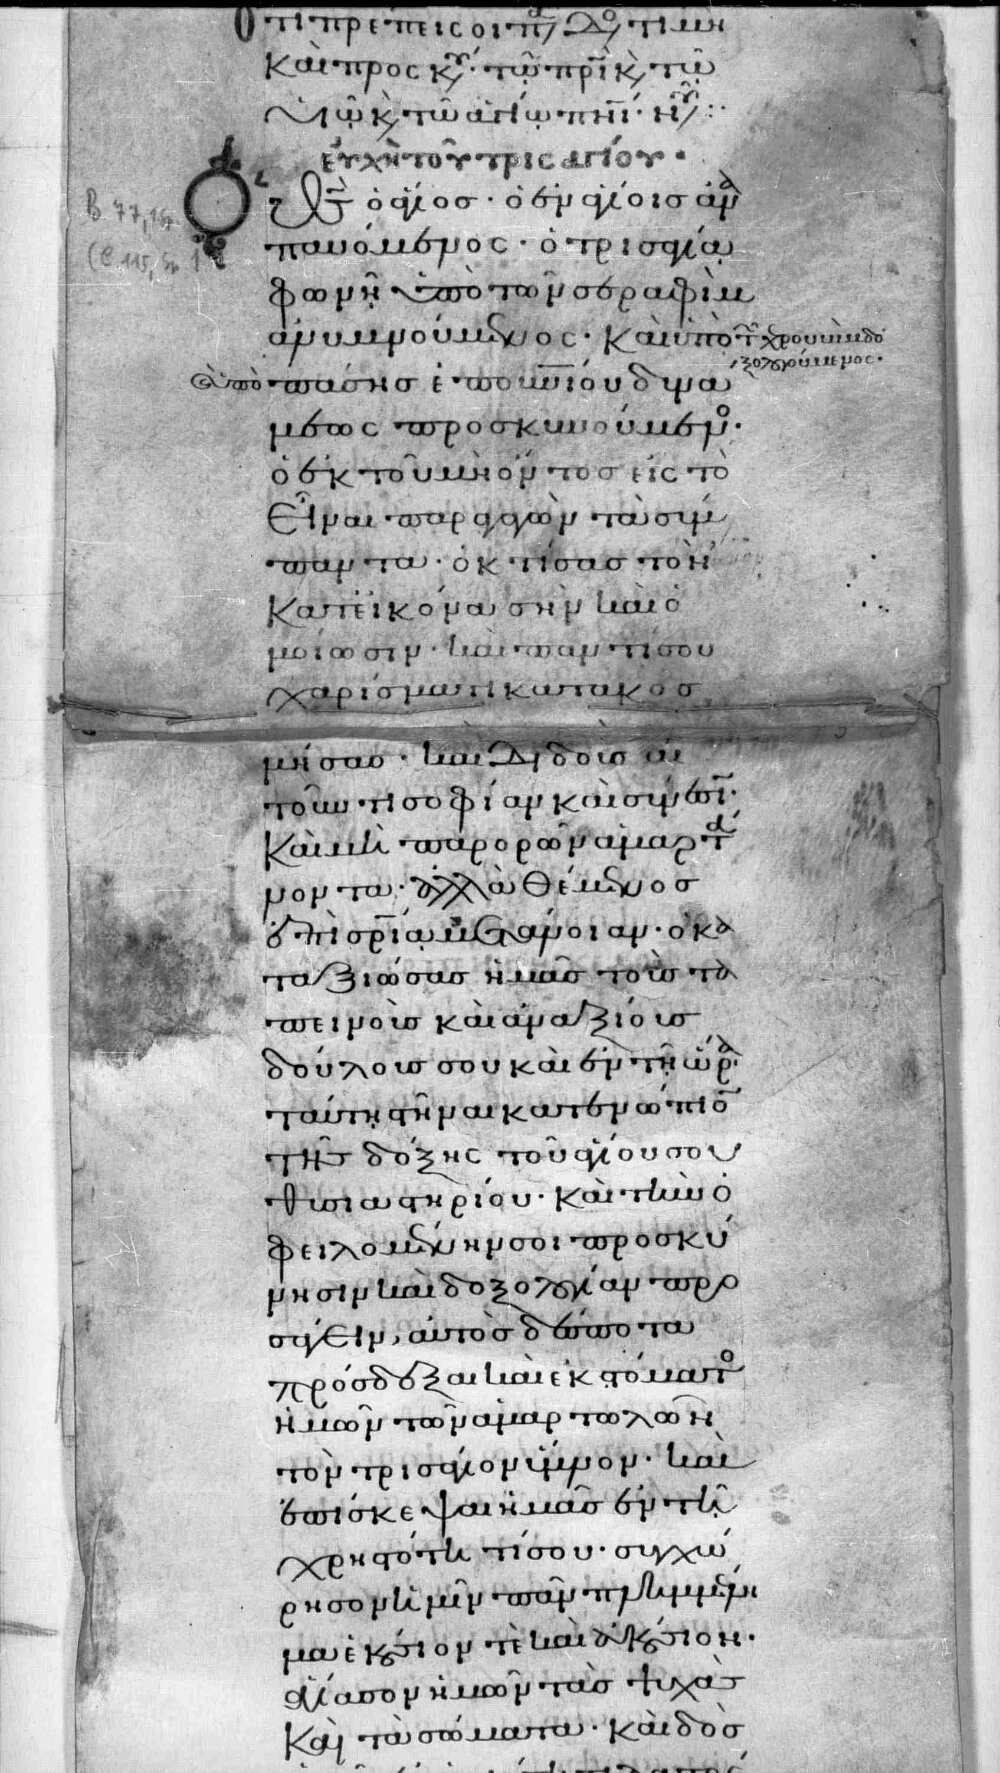 Ὅτι πρέπει σοι π δο τιμὴ
Καὶ προσκ τῶ πρὶ κ τῶ
υἱῶ κ τῶ ἁγίω πνι νυ
εὐχὴ τοῦ τρισαγίου
B 77,
Ὁ θς ὁ ἅγιος · ὁ ἐν ἁγίοις ἀνα
παυόμενος · ὁ τρισαγία
φωνῆ ὑπὸ τῶν σεραφὶμ
ἀνυμνούμενος · Καὶ ὑπὸ τ χερουβὶμ δο
ξολογούμενος ·
ὑπὸ πάσης ἐπουνίου δυνά
μεως προσκυνούμενο ·
ὁ ἐκ τοῦ μὴ ὄντος εἰς τὸ
εἶναι παραγαγὼν τὰ σύν
παντα · ὁ κτίσας τὸν
Κατ εἰκόνα σὴν καὶ ὁ
μοίωσιν · καὶ παντί σου
χαρίσματι κατακοσ
μήσας · καὶ διδοὺς αἰ
τοῦντι σοφίαν καὶ σύνεσι ·
Καὶ μὴ παρορῶν ἁμαρτά
νοντα · ἀλλὰ θέμενος
ἐπὶ σρία μετάνοιαν · ὁ κα
ταξιώσας ἡμᾶς τοὺς τα
πεινοὺς καὶ ἀναξίους
δούλους σου καὶ ἐν τῆ ὥρα
ταύτη στῆναι κατενώπιο
τῆς δόξης τοῦ ἁγίου σου
θυσιαστηρίου · Καὶ τὴν ὀ
φειλομένην σοι προσκύ
νησιν καὶ δοξολογίαν προ
σάγειν, αὐτὸς δέσποτα
πρόσδεξαι καὶ ἐκ στόματο
ἡμῶν τῶν ἁμαρτωλῶν
τὸν τρισάγιον ὕμνον · καὶ
ἐπίσκεψαι ἡμᾶς ἐν τῆ
χρηστότητί σου · συγχώ
ρησον ἡμῖν πᾶν πλημμέλη
μα ἑκούσιόν τε καὶ ἀκούσιον ·
ἁγίασον ἡμῶν τὰς ψυχὰς
Καὶ τὰ σώματα · καὶ δὸς